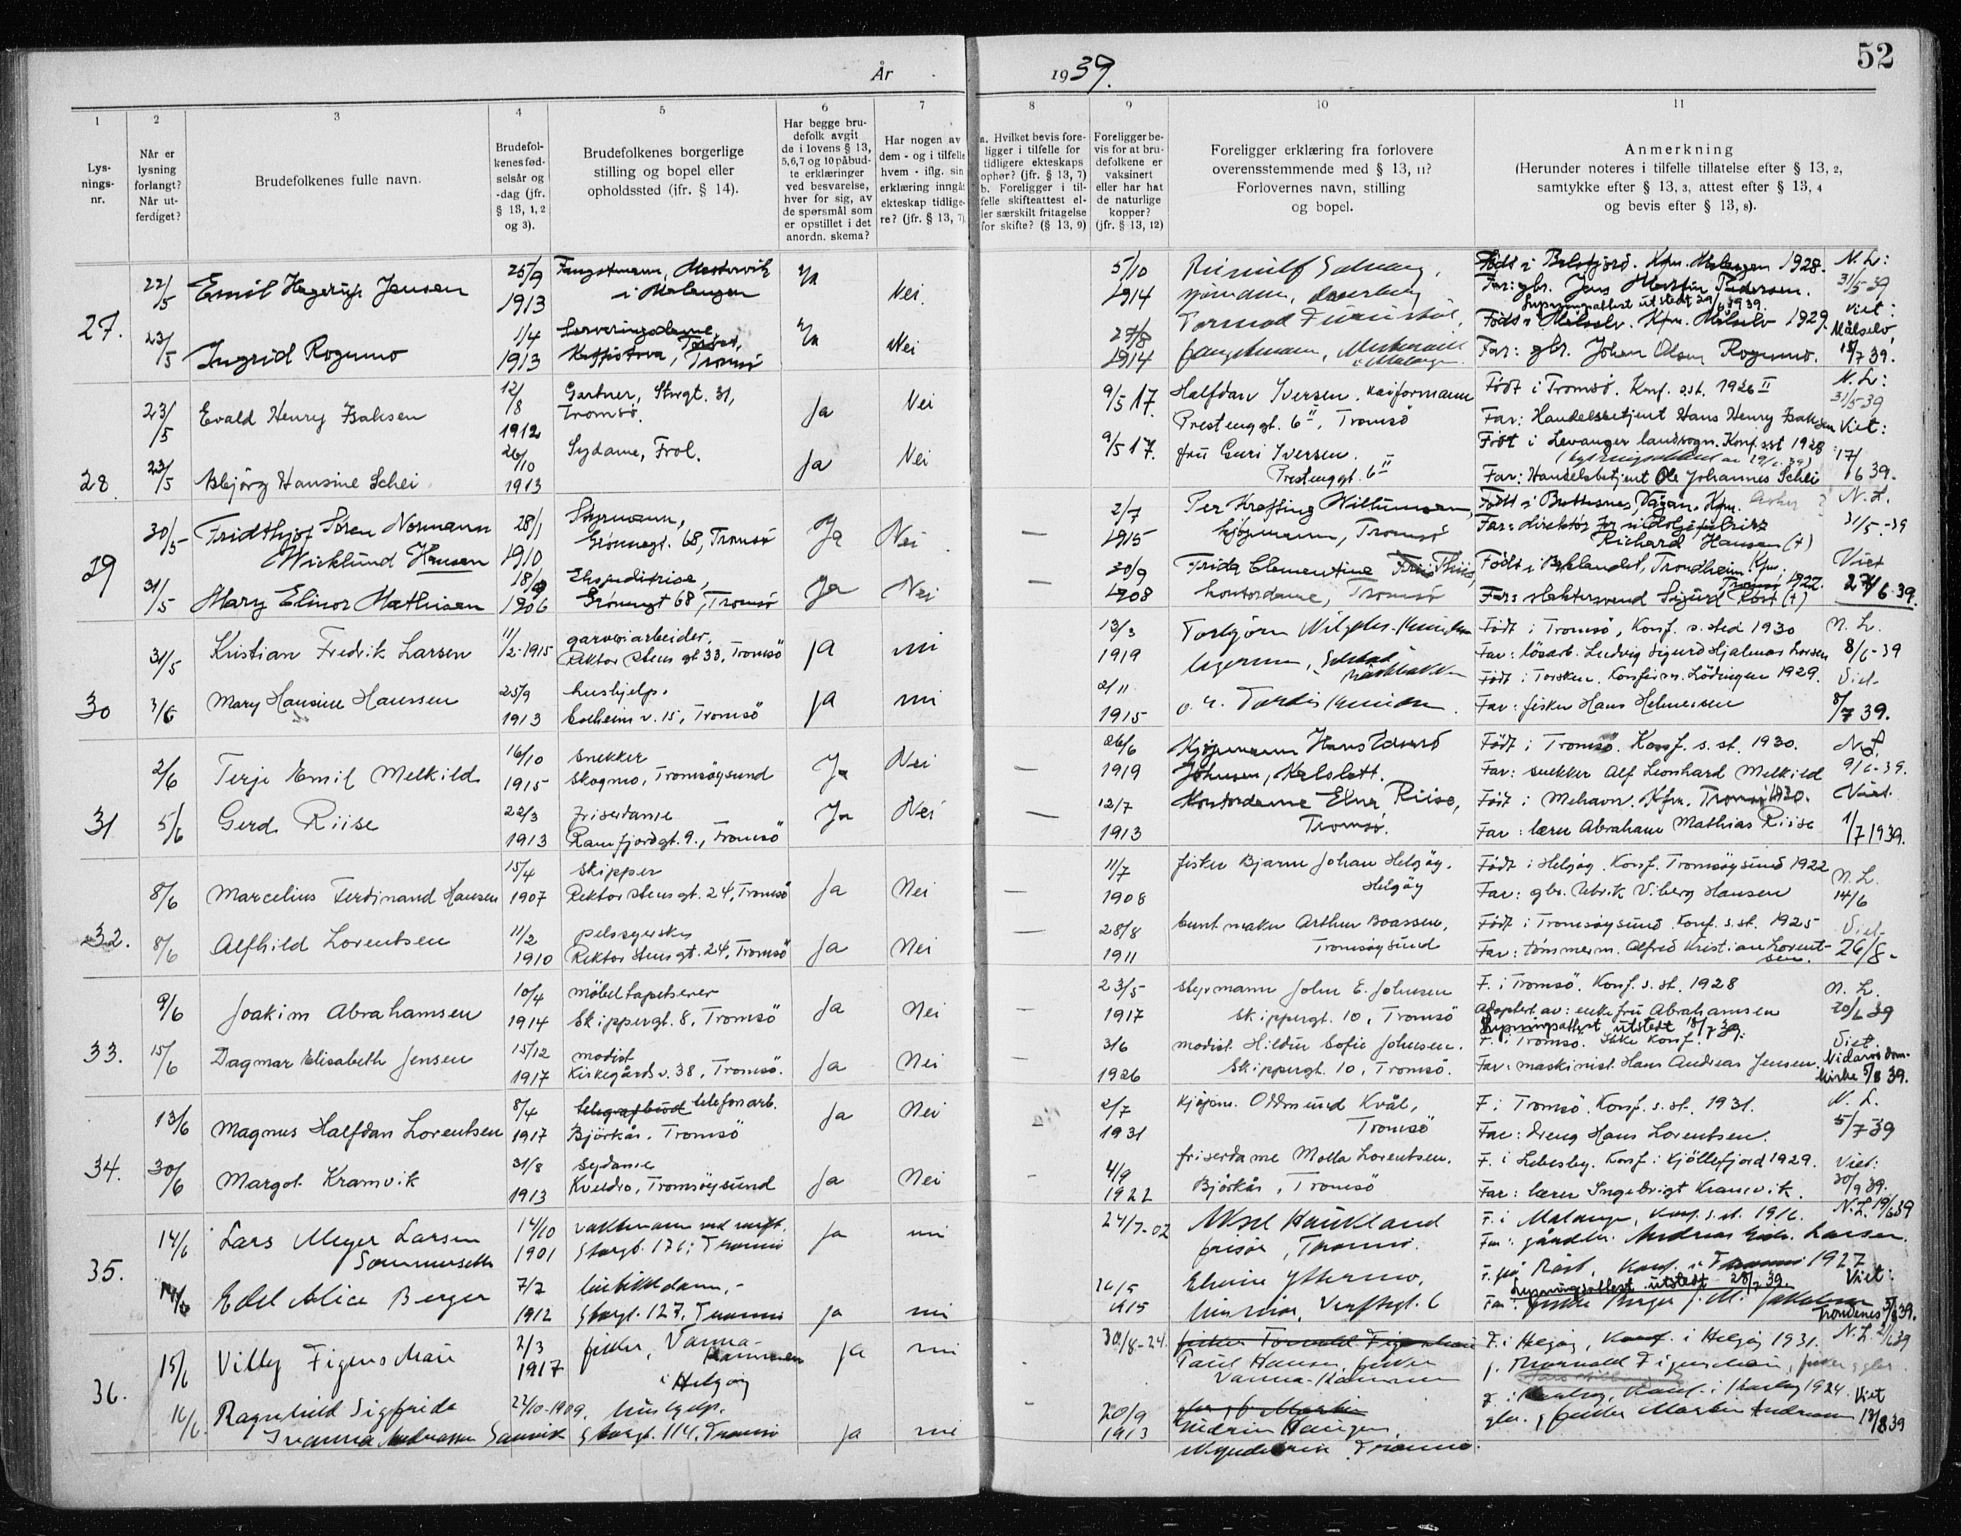 År
1939.
52
1
2
3
4
5
6
7
8
9
10
11
Lys-
nings-
nr.
Når er
lysning
forlangt?
Når ut-
ferdiget?
Brudefolkenes fulle navn.
Brudefol-
kenes fød-
selsår og
-dag (jfr.
§ 13, 1, 2
og 3).
Brudefolkenes borgerlige
stilling og bopel eller
opholdssted (jfr. § 14).
Har begge bru-
defolk avgit
de i lovens § 13,
5,6,7 og 10 påbud-
te erklæringer
ved besvarelse,
hver for sig, av
de spørsmål som
er opstillet i det
anordn. skema?
Har nogen av
dem - og i tilfelle
hvem - iflg. sin
erklæring inngåt
ekteskap tidlige-
re? (jfr. § 13, 7)
a. Hvilket bevis fore-
ligger i tilfelle for
tidligere ekteskaps
ophør? (jfr. § 13, 7)
b. Foreligger i til-
felle skifteattest el-
ler særskilt fritagelse
for skifte? (§ 13, 9)
Foreligger be-
vis for at bru-
defolkene er
vaksinert
eller har hat
de naturlige
kopper?
(jfr. § 13, 12)
Foreligger erklæring fra forlovere
overensstemmende med § 13, 11?
Forlovernes navn, stilling
og bopel.
Anmerkning
(Herunder noteres i tilfelle tillatelse efter § 13, 2,
samtykke efter § 13, 3, attest efter § 13, 4
og bevis efter § 13, 8).
27.
22/5
Emil Hagerup Jensen
25/9
1913
Fangstmann, Mestervik
i Malangen
Nei.
5/10
1914
Født i Balsfjord. Kfm. Malangen 1928.
Far: gbr. Jens Martin Pedersen.
N. L:
31/5-39
23/5
Ingrid Rognmo
1/4
1913
Serveringsdame,
Tromsø
Nei
27/8
1914
fangstmann,
Født i Målselv. Kfm. Målselv 1929.
Far: gbr. Johan Olsen Rognmo.
Viet:
Målselv
/7 39.
28.
23/5
Evald Henry Isaksen
12/8
1912
Gartner, Strgt. 31,
Tromsø.
Ja
Nei
9/5 17.
Halfdan Iversen. kaiformann
Prestenggt. 6 II, Tromsø
Født i Tromsø. Konf. s.st. 1926 II
Far: Handelsbetjent Hans Henry Isaksen
N. L:
31/5-39
23/5
Asbjörg Hansine Schei
26/10
1913
Sydame, Frol.
Ja
Nei
9/5 17.
fru Guri Iversen.
Prestenggt. 6 II
Født i Levanger landsogn. Konf. sst 1928
Far: Handelsbetjent Ole Johannes Schei
Viet:
17/6 39.
29
30/5
Fridthjof Søren Normann
Wicklund Hansen
28/1
1910
Styrmann,
Grønnegt. 68, Tromsø
Ja
Nei
—
2/7
1915
Per Krafting Willumsen,
kjøpmann, Tromsø
Far: direktør
Richard Hansen (†)
N. L.
31/5-39
31/5
Mary Elinor Mathisen
18/9
1906
Ekspeditrise,
Grønnegt 68, Tromsø
Ja
Nei
—
20/9
1908
Frida Clementine Thiis
kontordame, Tromsø
Født i Baklandet, Trondheim. Kfm.
Tromsø 1922.
Far: slaktersvend Sigurd Røst (†)
Viet
27/6 39.
30
31/5
Kristian Fredrik Larsen
11/2-1915
garveriarbeider,
Rektor Stens gt 33, Tromsö
ja
nei
13/3
1919
Torbjørn
Født i Tromsö, Konf. s. sted 1930
Far: lösarb. Ludvig Sigurd Hjalmar Larsen
N. L.
8/6-39
3/6
Mary Hansine Hanssen
25/9
1913
hushjelp.
Solheim v. 15, Tromsö
ja
nei
2/11
1915
Född i Torsken. Konfirm. Lödingen 1929.
Far: fisker Hans Helmersen
Viet
8/7 39.
31
2/6
Terje Emil Melkild
16/10
1915
snekker
Skogmo, Tromsöysund
Ja
Nei
—
26/6
1919
Kjøpmann Hans Edvard
Johnsen, Kalslett.
Född i Tromsö. Konf. s. st. 1930.
Far: snekker Alf Leonhard Melkild
N.L.
9/6-39.
5/6
Gerd Riise
22/3
1913
Friserdame
Ramfjordgt. 9., Tromsö
Ja
Nei
—
12/7
1913
Kontordame Elna Riise,
Tromsø.
Född i Mehavn. Kfm. Tromsø 1930.
Far: lærer Abraham Mathias Riise
Viet.
1/7 1939.
32.
8/6
Marcelius Ferdinand Hansen
15/4
1907
Skipper
Rektor Stensgt. 24, Tromsö
Ja
Nei
—
11/7
1908
fisker Bjarne Johan Helgöy.
Helgöy
Född i Helgöy. Konf. Tromsöysund 1922
Far: gbr. Ulrik Viberg Hansen
N. L.
14/6
8/6
Alfhild Lorentsen
11/2
1910
pelssyerske
Rektor Stensgt. 24, Tromsö
Ja
Nei
—
28/8
1911
buntmaker Arthur Boassen,
Tromsöysund
Född i Tromsöysund Konf. s. st. 1925
Far: tömmerm. Alfred Kristian Lorent-
sen.
Viet.
26/8-
33.
9/6
Joakim Abrahamsen
10/4
1914
möbeltapetserer
Skippergt. 8, Tromsö
Ja
Nei
—
23/5
1917
styrmann John E. Johnsen
Skippergt. 10, Tromsö
F. i Tromsö. Konf. s. st. 1928
adoptert av: enkefru Abrahamsen
Lysningsattest utstedt 18/7 39.
N. L.
20/6 39
15/6
Dagmar Elisabeth Jensen
15/12
1917
modist
Kirkegårdsv. 38, Tromsö.
Ja
Nei
—
3/6
1926
modist. Hildur Sofie Johnsen.
Skippergt. 10, Tromsö.
F. i Tromsö. Ikke Konf.
Far: maskinist. Hans Andreas Jensen.
Viet.
Nidaros dom-
kirke 5/8 39.
34.
13/6
Magnus Halfdan Lorentsen
8/4
1917
telegrafbud telefonarb.
Björkås. Tromsö
Ja
Nei
2/7
1931
kjöpm. Oddmund Kvål,
Tromsö
F. i Tromsö. Konf. s. st. 1931.
Far: dreng Hans Lorentsen.
N. L.
5/7 39
30/6
Margot Kramvik
31/8
1913
Sydame
Kveldro, Tromsöysund
Ja
Nei
-
4/9
1922
friserdame Molla Lorentsen.
Björkås, Tromsö
F. i Lebesby. Konf. i Kjöllefjord 1929.
Far: lærer Ingebrigt Kramvik.
Viet:
30/9 39.
35.
14/6
Lars Meyer Larsen
Sommerseth
14/10
1901
Storgt. 171, Tromsø
ja
nei
24/7-02
Aksel Haukland
frisør, Tromsø.
F. i Malangen, Konf. s. st. 1916.
N.L. 19/6 39
Edel Alice Berger
7/2
1912
Storgt. 127, Tromsø
ja
nei
F. på Röst, Konf. i Tromsø 1927
Lysningsattest utstedt 28/7 39
Viet:
Trondenes 5/8 39.
36.
15/6
Villy Figenschau
2/3
1917
fisker, Vanna-
kammen
i Helgøy
ja
nei
30/8-24.
Paul Hansen, fisker
Vanna-Kammen
F. i Helgøy, Konf. i Helgøy 1931.
N. L.
16/6
Ragnhild Sigfrida
Ivanna Andreassen Sanvik
22/10-1909.
hushjelp.
Storgt. 114, Tromsø
ja
nei
20/9
1913
Tromsø.
Viet